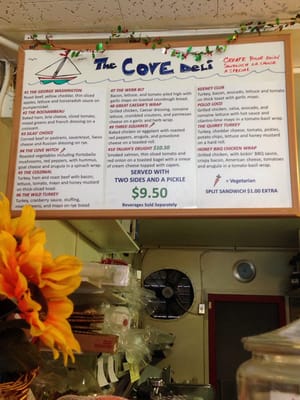 The COVE Deli
CREATE YOUR OWN!
SANDWICH OR CHOOSE
A SPECIAL
#1 THE GEORGE WASHINGTON
Roast beef, yellow cheddar, thin sliced
apples, lettuce and horseradish sauce on
pumpernickel
#2 THE ROCKINGBEAU
Baked ham, brie cheese, sliced tomato,
mixed greens and French dressing on a
croissant
#3 DEANS' CHOICE
Corned beef or pastrami, sauerkraut, Swiss
cheese and Russian dressing on rye
#4 THE COVE WITCH
Roasted vegetables including Portobello
mushrooms, red peppers, with hummus,
goat cheese and avocado in a spinach wrap
#5 THE COLONIAL
Turkey, ham and roast beef with bacon,
lettuce, tomato, mayo and honey mustard
on thick-sliced toast
#6 THE WILD TURKEY
Turkey, cranberry sauce, Swiss
and on rye bread
#7 THE WEBB BLT
Bacon, lettuce, and tomato piled high with
garlic mayo on toasted sourdough bread
#8 GREAT CAESAR'S WRAP
Grilled chicken, Caesar dressing, romaine
lettuce, crumbled croutons, and parmesan
cheese on a garlic and herb wrap
#9 THREE SQUARES
Baked chicken or eggplant with roasted
red peppers, arugula, and provolone
cheese on a toasted roll
#10 TRUMP'S DELIGHT $10.50
Smoked salmon, thin sliced tomato and
red onion on a toasted bagel with a smear
of cream cheese topped with capers
SERVED WITH
TWO SIDES AND A PICKLE
$9.50
Beverages Sold Separately
KEENEY CLUB
Turkey, bacon, avocado, lettuce and tomato
on thick bread with garlic mayo
POLLO LOCO
Grilled chicken, salsa, avocado, and
romaine lettuce with hot sauce and
cilantro-lime mayonnaise in a chipotle wrap
THE QUIRKY TURKEY
Turkey, cheddar cheese, tomato, pickles,
potato chips, lettuce and honey mustard
on a hard roll
HONEY BBQ CHICKEN WRAP
Grilled chicken, with kickin' BBQ sauce,
crispy bacon, American cheese, tomatoes
and arugula in a tomato-basil wrap
= Vegetarian
SPLIT SANDWICH $1.00 EXTRA